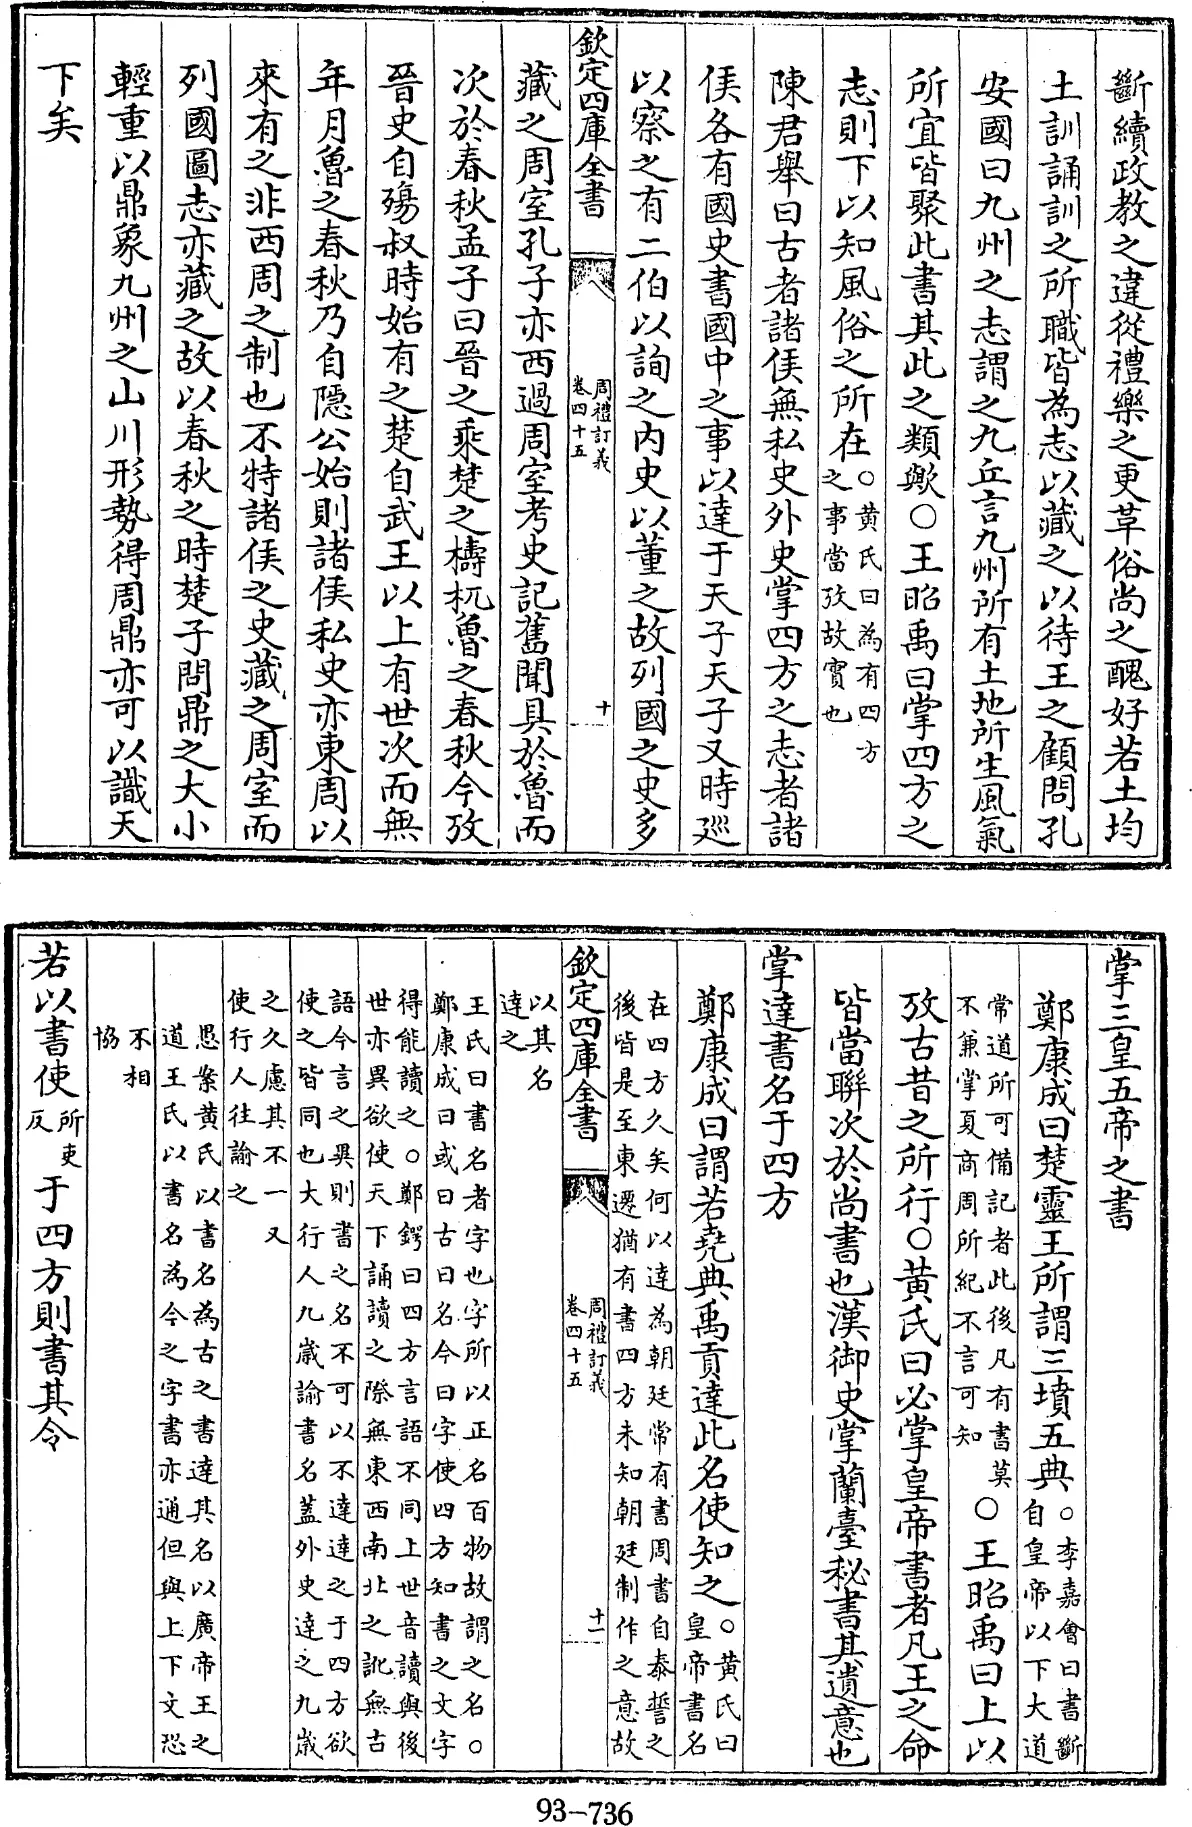 斷續政教之違從禮樂之更革俗尚之醜好若土均
土訓誦訓之所職皆為志以藏之以待王之顧問孔
安國曰九州之志謂之九丘言九州所有土地所生風氣
所宜皆聚此書其此之類歟○王昭禹曰掌四方之
志則下以知風俗之所在○黄氏曰為有四方之事當攷故實也
陳君舉曰古者諸侯無私史外史掌四方之志者諸
侯各有國史書國中之事以達于天子天子又時廵
以察之有二伯以詢之内史以董之故列國之史多
欽定四庫全書
周禮訂義
卷四十五
十
藏之周室孔子亦西過周室考史記舊聞具於魯而
次於春秋孟子曰晉之乘楚之檮杌魯之春秋今攷
晉史自殤叔時始有之楚自武王以上有世次而無
年月魯之春秋乃自隱公始則諸侯私史亦東周以
來有之非西周之制也不特諸侯之史藏之周室而
列國圖志亦藏之故以春秋之時楚子問鼎之大小
輕重以鼎象九州之山川形勢得周鼎亦可以識天
下矣
掌三皇五帝之書
鄭康成曰楚靈王所謂三墳五典○李嘉會曰書斷自皇帝以下大道
常道所可備記者此後凡有書莫不兼掌夏商周所紀不言可知○王昭禹曰上以
攷古昔之所行○黄氏曰必掌皇帝書者凡王之命
皆當聯次於尚書也漢御史掌蘭臺秘書其遺意也
掌達書名于四方
鄭康成曰謂若堯典禹貢達此名使知之○黄氏曰皇帝書名
在四方久矣何以達為朝廷常有書周書自泰誓之
後皆是至東遷猶有書四方未知朝廷制作之意故
欽定四庫全書
周禮訂義
卷四十五
十一
以其名
達之
王氏曰書名者字也字所以正名百物故謂之名○
鄭康成曰或曰古曰名今曰字使四方知書之文字
得能讀之○鄭鍔曰四方言語不同上世音讀與後
世亦異欲使天下誦讀之際無東西南北之訛無古
語今言之異則書之名不可以不達達之于四方欲
使之皆同也大行人九歲諭書名蓋外史達之九歲
之久慮其不一又
使行人往諭之
愚案黄氏以書名為古之書達其名以廣帝王之
道王氏以書名為今之字書亦通但與上下文恐
不相
協
若以書使所吏反于四方則書其令
93-736